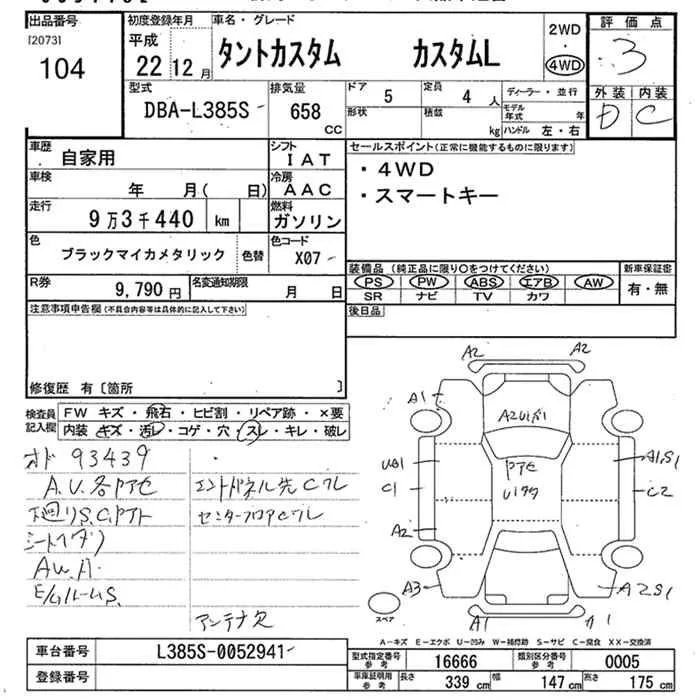 出品番号
[2073]
104
初度登録年月
平成
22 12 月
車名・グレード
タントカスタム カスタムL
2WD
・
4WD
評価点
3
外装 内装
D C
型式
DBA-L385S
排気量
658 CC
ドア 5
形状
定員 4 人
積載 kg
ディーラー・並行
モデル年式 年
ハンドル 左・右
車歴 自家用
シフト IAT
車検 年 月( 日)
冷房 AAC
走行 9万3千440 km
燃料 ガソリン
色 ブラックマイカメタリック 色替
色コード X07
R券 9,790 円
名変通知期限 月 日
セールスポイント(正常に機能するものに限ります)
・4WD
・スマートキー
装備品 (純正品に限り○をつけてください)
PS PW ABS エアB AW
SR ナビ TV カワ
新車保証書
有・無
後日品
注意事項申告欄 (不具合内容等は具体的に記入して下さい)
修復歴 有 〔箇所 〕
検査員記入欄
FW キズ・飛石・ヒビ割・リペア跡・×要
内装 キズ・汚レ・コゲ・穴・スレ・キレ・破レ
オド 93439
A.U.各
下廻りS.C.
シートヘタリ
AW.A
E/GルームS.
センターフロア
アンテナ欠
A2 A2
A1
A2U1
U1
C1
A2
A3
A1S1
C2
A2S1
A1 A1
スペア
A-キズ E-エクボ U-凹み W-補修跡 S-サビ C-腐食 XX-交換済
車台番号 L385S-0052941
登録番号
型式指定番号 参考 16666
類別区分番号 参考 0005
車庫証明用 参考 長さ 339 cm 幅 147 cm 高さ 175 cm